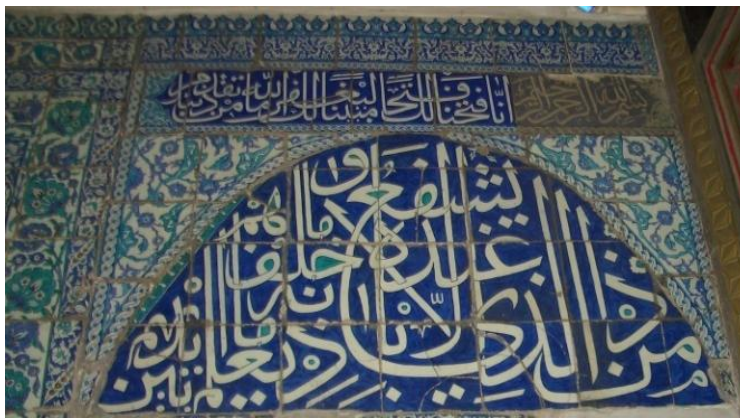 بسم الله الرحمن الرحيم انا فتحنا لك فتحا مبينا ليغفر لك الله ما تقدم من ذنبك
من ذا الذي يشفع عنده الا باذنه يعلم ما بين ايديهم وما خلفهم